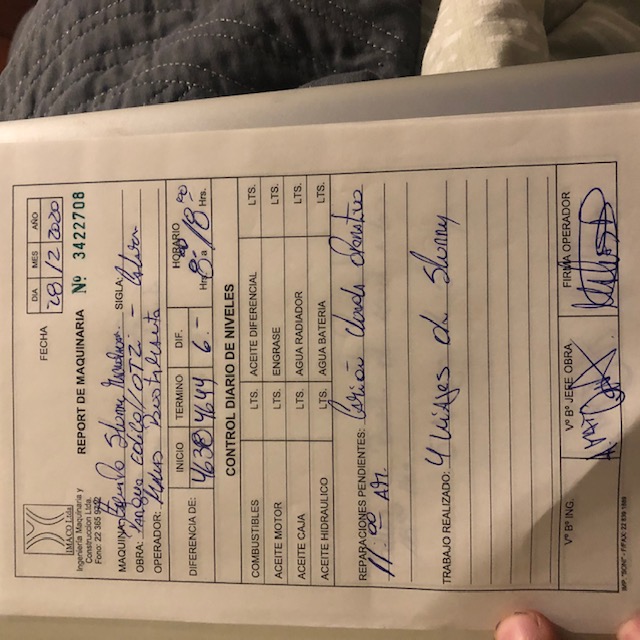 IMACO Ltda
Ingeniería Maquinaria y
Construccion Ltda.
Fono: 22 365
FECHA
DIA MES AÑO
28/2 2020
REPORT DE MAQUINARIA Nº 3422708
MAQUINA: Slurry SIGLA:
OBRA: Parque
OPERADOR:
DIFERENCIA DE: INICIO TERMINO DIF. HORARIO
4638 4644 6.- Hrs 8:00 a 18:00 Hrs.
CONTROL DIARIO DE NIVELES
COMBUSTIBLES LTS. ACEITE DIFERENCIAL LTS.
ACEITE MOTOR LTS. ENGRASE LTS.
ACEITE CAJA LTS. AGUA RADIADOR LTS.
ACEITE HIDRAULICO LTS. AGUA BATERIA LTS.
REPARACIONES PENDIENTES: Camión
11:00 AM.
TRABAJO REALIZADO: 4 viajes de Slurry
Vº Bº ING. Vº Bº JEFE OBRA FIRMA OPERADOR
IMP. "BONI" - F/FAX: 22 839 1589